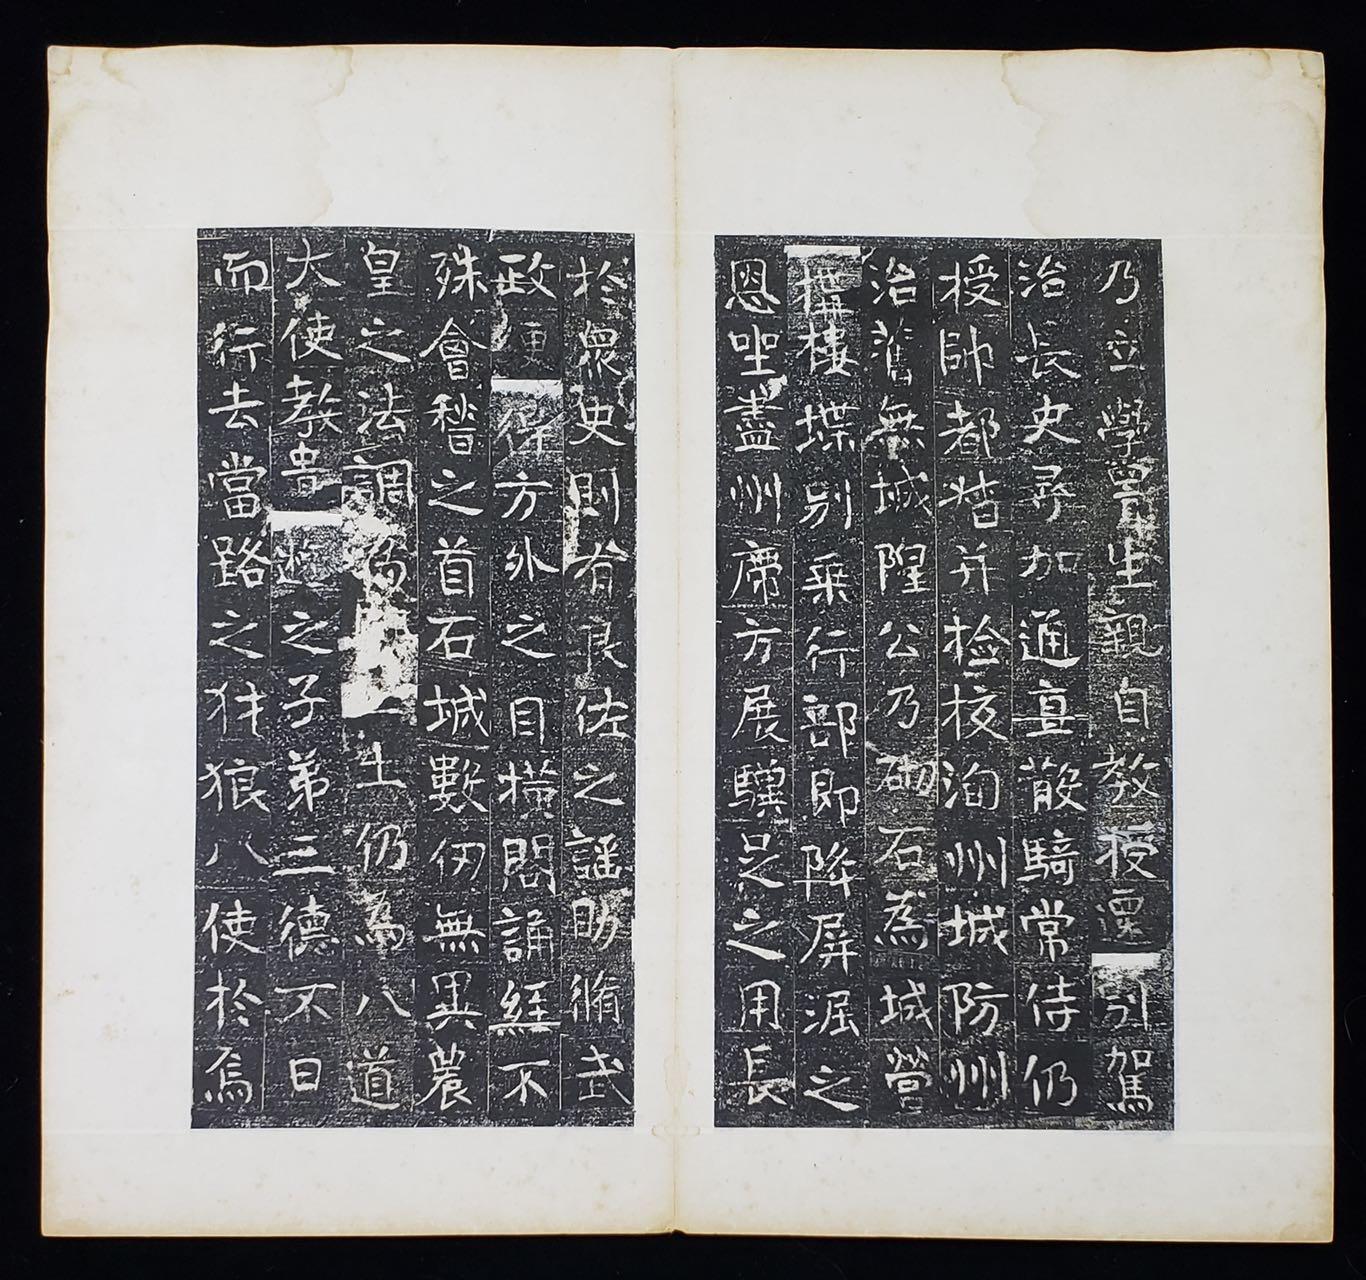 乃立學置生親自教授還引駕
治長史尋加通直散騎常侍仍
授帥都督并檢校洵州城防州
治舊無城隍公乃砌石為城營
構樓堞别乗行部即降屏渥之
恩唑盡州席方展驥足之用長
於衆吏則有良佐之謡助脩武
政便停方外之目横閣誦經不
殊會稽之首石城數仞無異農
皇之法調土仍為八道
大使教貴遊之子弟三德不日
而行去當路之犲狼八使於焉